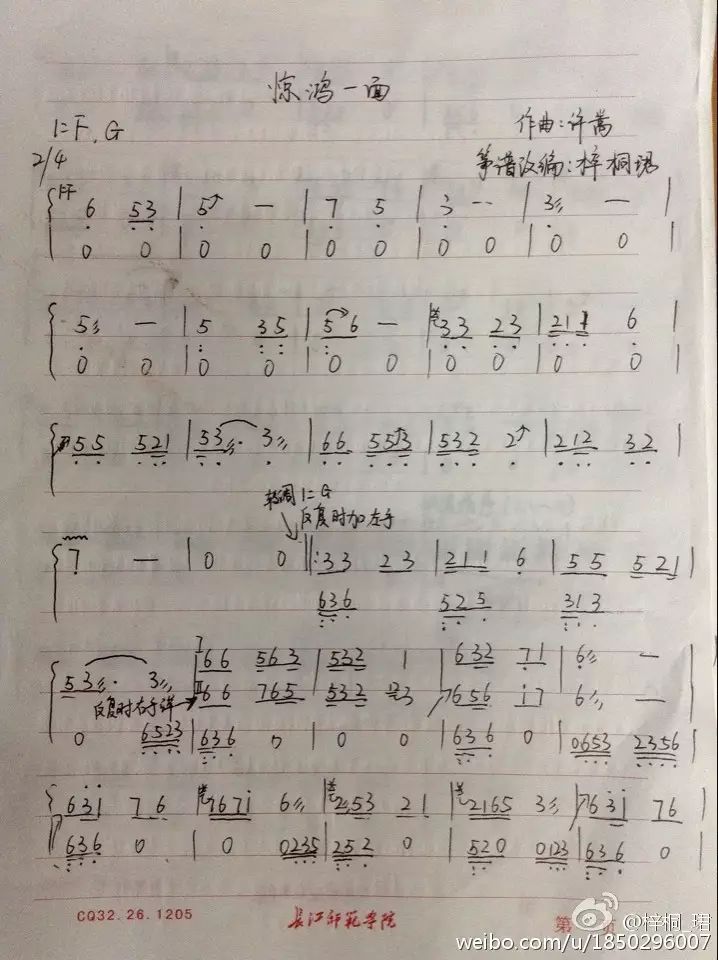 惊鸿一面
1=F,G 作曲:许嵩
2/4 筝谱改编:梓桐珺
6 53 | 5 — | 7 5 | 3 -- | 3 — |
0 0 | 0 0 | 0 0 | 0 0 | 0 0 |
5 — | 5 35 | 5 6 — | 33 23 | 211 6 |
0 0 | 0 0 | 0 0 | 0 0 | 0 0 |
55 521 | 53· 3 | 66 553 | 532 2 | 212 32 |
转调 1=G
反复时加左手
7 — | 0 0 ‖: 33 23 | 211 6 | 55 521 |
636 525 313
53· 3 | I 66 563 | 532 1 | 632 71 | 6 —
反复时右手弹 II 66 765 | 532 3 | 7656 i7 6 —
0 6523 | 636 0 | 0 0 | 636 0 | 0653 2356
631 76 | 767i 6 | 253 21 | 2165 3 | 763i 76 |
636 0 | 0 0235 | 252 0 | 520 0123 | 636 0 |
CQ32.26.1205 长江师范学院 第 页
@梓桐_珺
weibo.com/u/1850296007